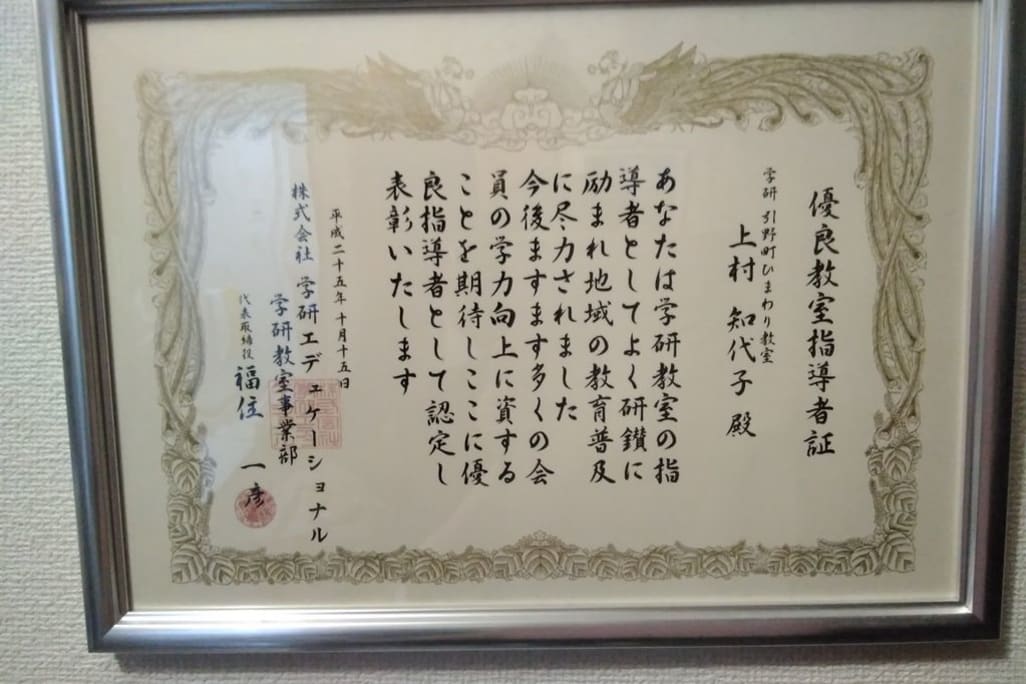 優良教室指導者証
学研 引野町ひまわり教室
上村 知代子 殿
あなたは学研教室の指
導者としてよく研鑽に
励まれ地域の教育普及
に尽力されました
今後ますます多くの会
員の学力向上に資する
ことを期待しここに優
良指導者として認定し
表彰いたします
平成二十五年十月十五日
株式会社 学研エデュケーショナル
学研教室事業部
代表取締役 福住 一彦